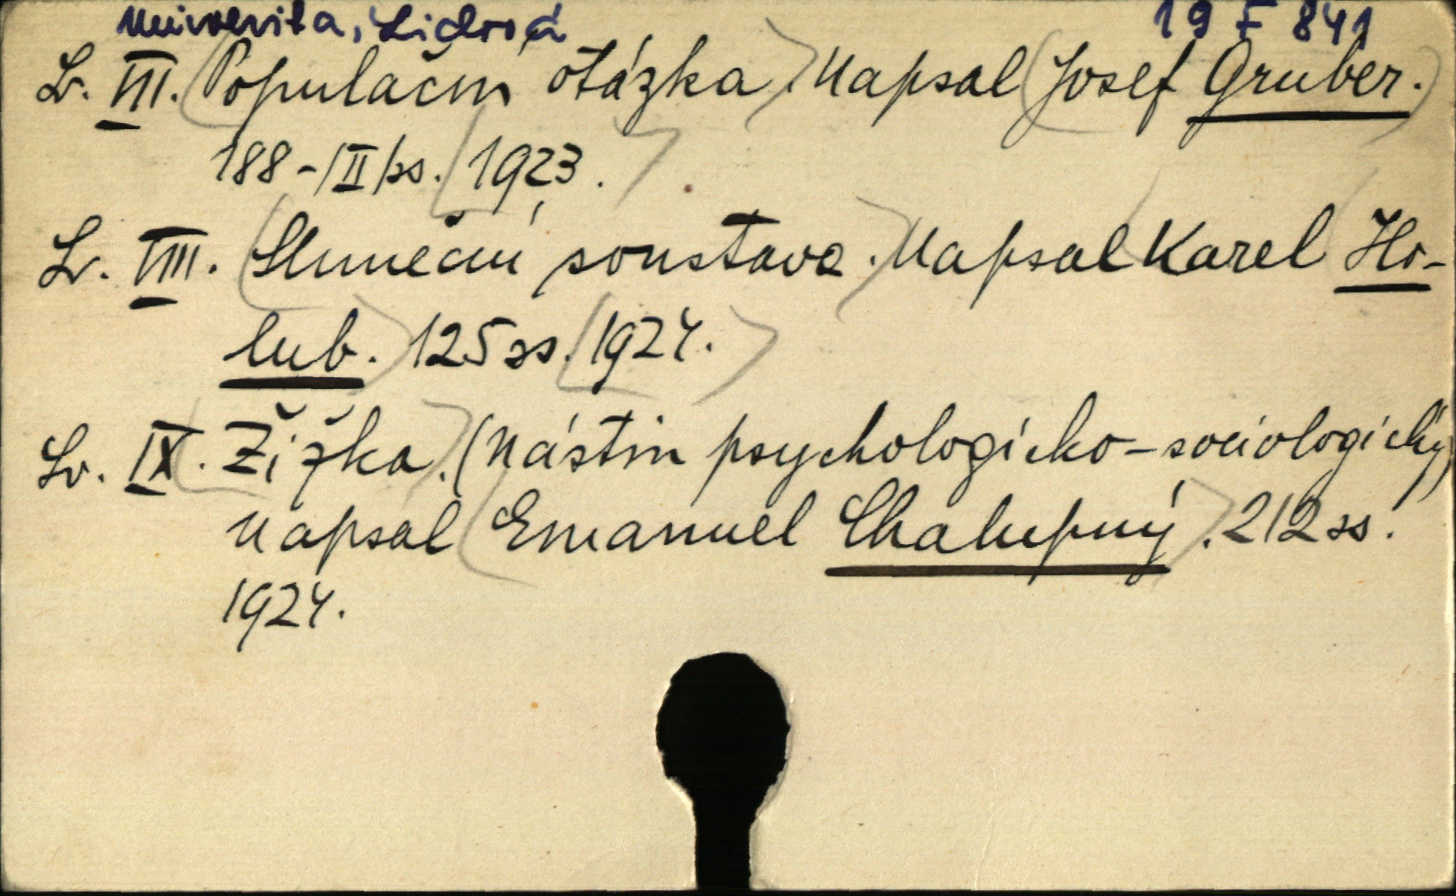 Universita, Lidová 19 F 841
Sv. VII. Populační otázka. Napsal Josef Gruber.
188-/II/ss. 1923.
Sv. VIII. Sluneční soustava. Napsal Karel Ho-
lub. 125 ss. 1924.
Sv. IX. Žižka. (Nástin psychologicko-sociologický)
Napsal Emanuel Chalupný. 212 ss.
1924.